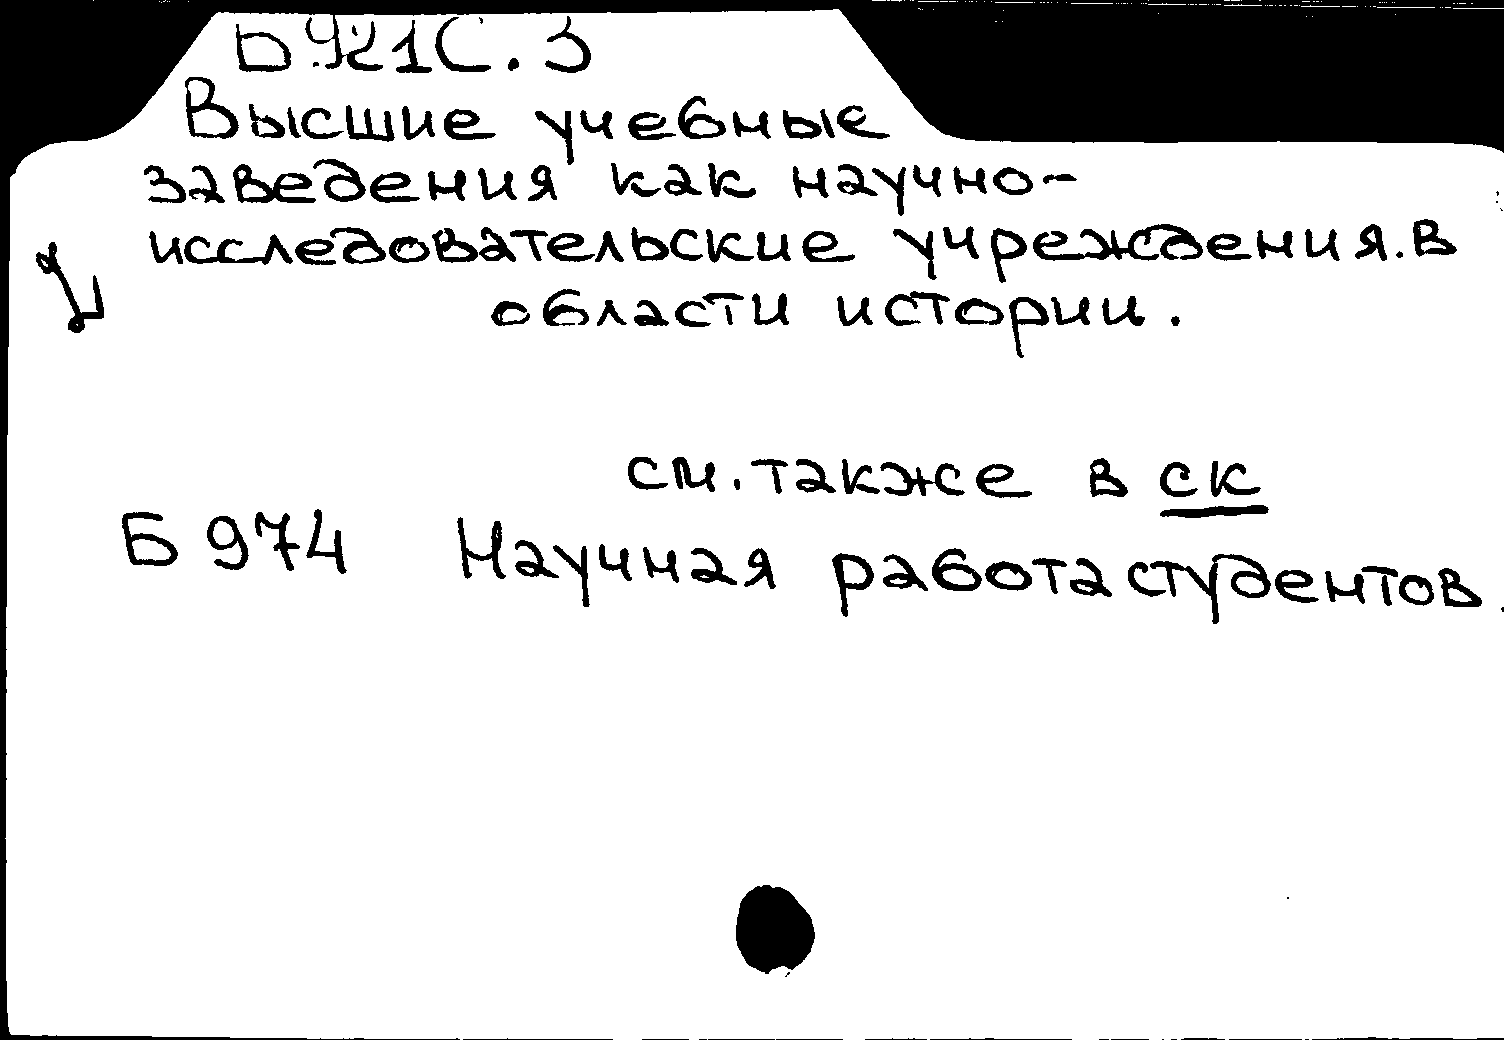 Б921С.3
Высшие учебные
заведения как научно-
исследовательские учреждения.в
области истории.
см. также в ск
Б974 Научная работа студентов.